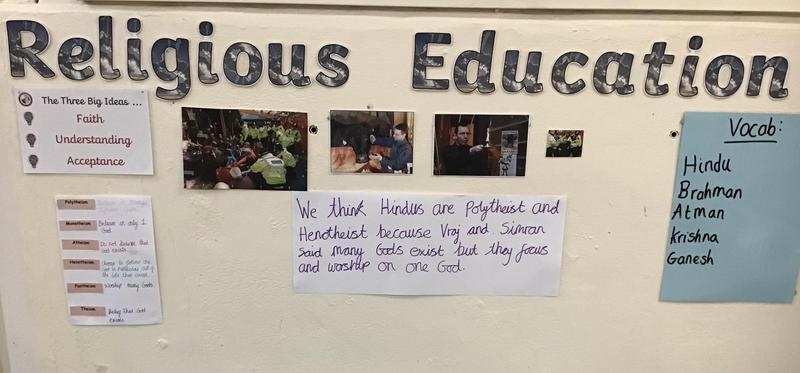 Religious Education
The Three Big Ideas ...
Faith
Understanding
Acceptance
Polytheism
Monotheism Believe in only 1
God.
Atheism Do not believe that
God exists
Henotheism
Pantheism Worship many Gods
Theism Belief that God
exists
We think Hindus are Polytheist and
Henotheist because Vraj and Simran
said many Gods exist but they focus
and worship on one God.
Vocab:
Hindu
Brahman
Atman
Krishna
Ganesh